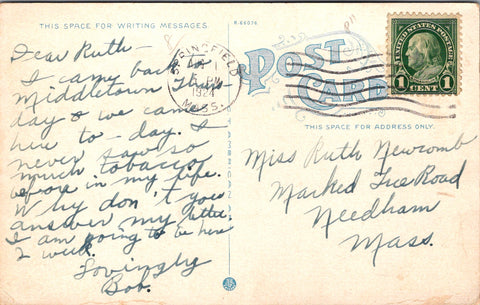 THIS SPACE FOR WRITING MESSAGES.
R-66076
Dear Ruth-
I came back to
Middletown Thurs-
day & we came
here to-day. I
never saw so
much tobacco
before in my life.
Why don't you
answer my letter.
I am going to be here
2 weeks.
Lovingly
Bob.
SPRINGFIELD
PM
1924
MASS.
POST
CARD
UNITED STATES POSTAGE
1 CENT 1
THIS SPACE FOR ADDRESS ONLY.
Miss Ruth Newcomb
Marked Tree Road
Needham
Mass.